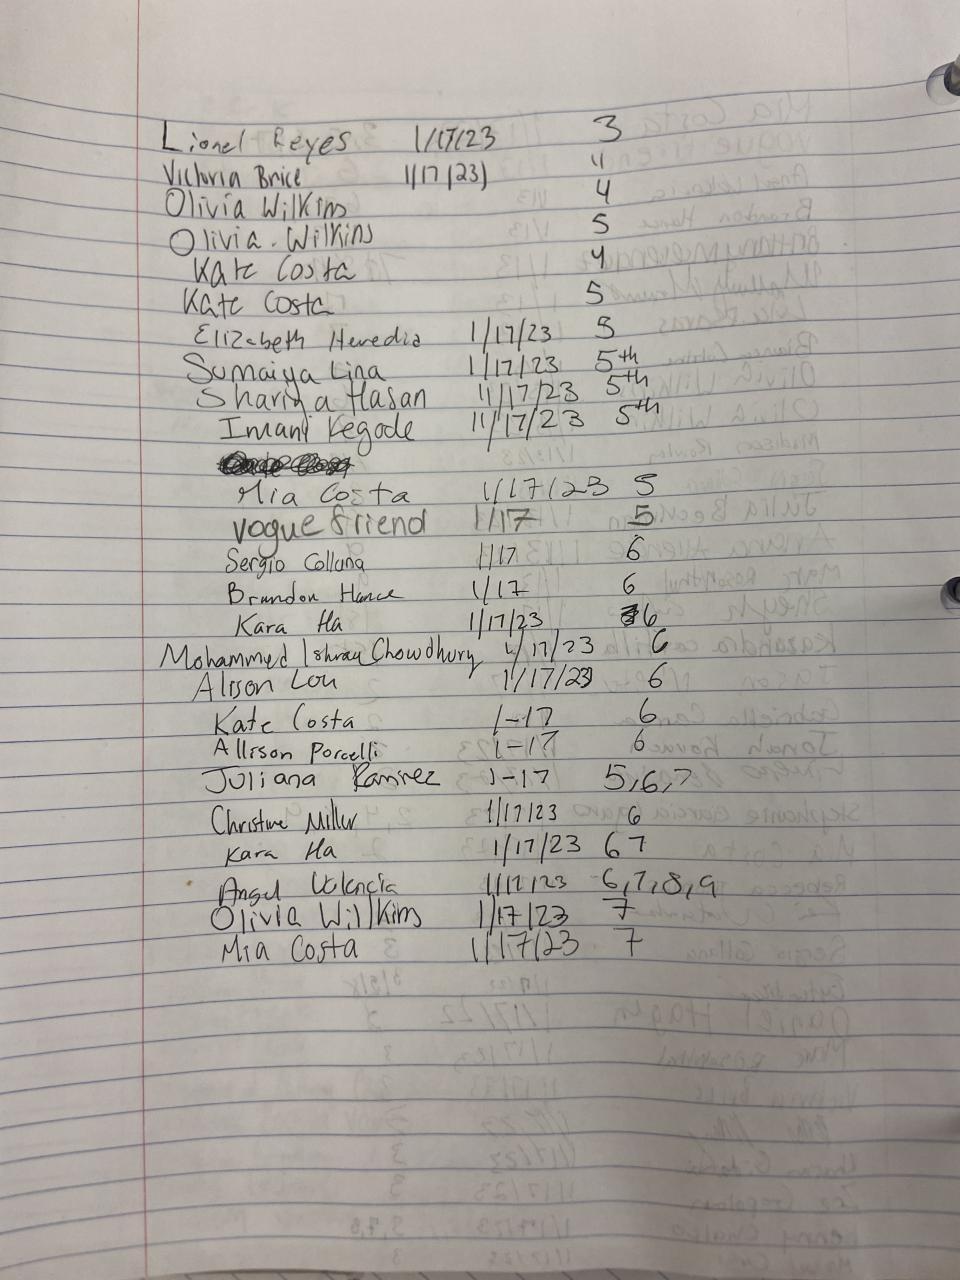 Lionel Reyes 1/17/23 3
Victoria Brice 1/17/23) 4
Olivia Wilkins 4
Olivia. Wilkins 5
Kate Costa 4
Kate Costa 5
Elizabeth Heredia 1/17/23 5
Sumaiya Lina 1/17/23 5th
Shariya Hasan 1/17/23 5th
Imani Kegode 1/17/23 5th
Mia Costa 1/17/23 5
vogue friend 1/17 5
Sergio Collana 1/17 6
Brandon Hance 1/17 6
Kara Ha 1/17/23 6
Mohammed Chowdhury 1/17/23 6
Alison Lou 1/17/23 6
Kate Costa 1-17 6
Allison Porcelli 1-17 6
Juliana Ramirez 1-17 5,6,7
Christine Miller 1/17/23 6
Kara Ha 1/17/23 6 7
Angel Valencia 1/17/23 6,7,8,9
Olivia Wilkins 1/17/23 7
Mia Costa 1/17/23 7